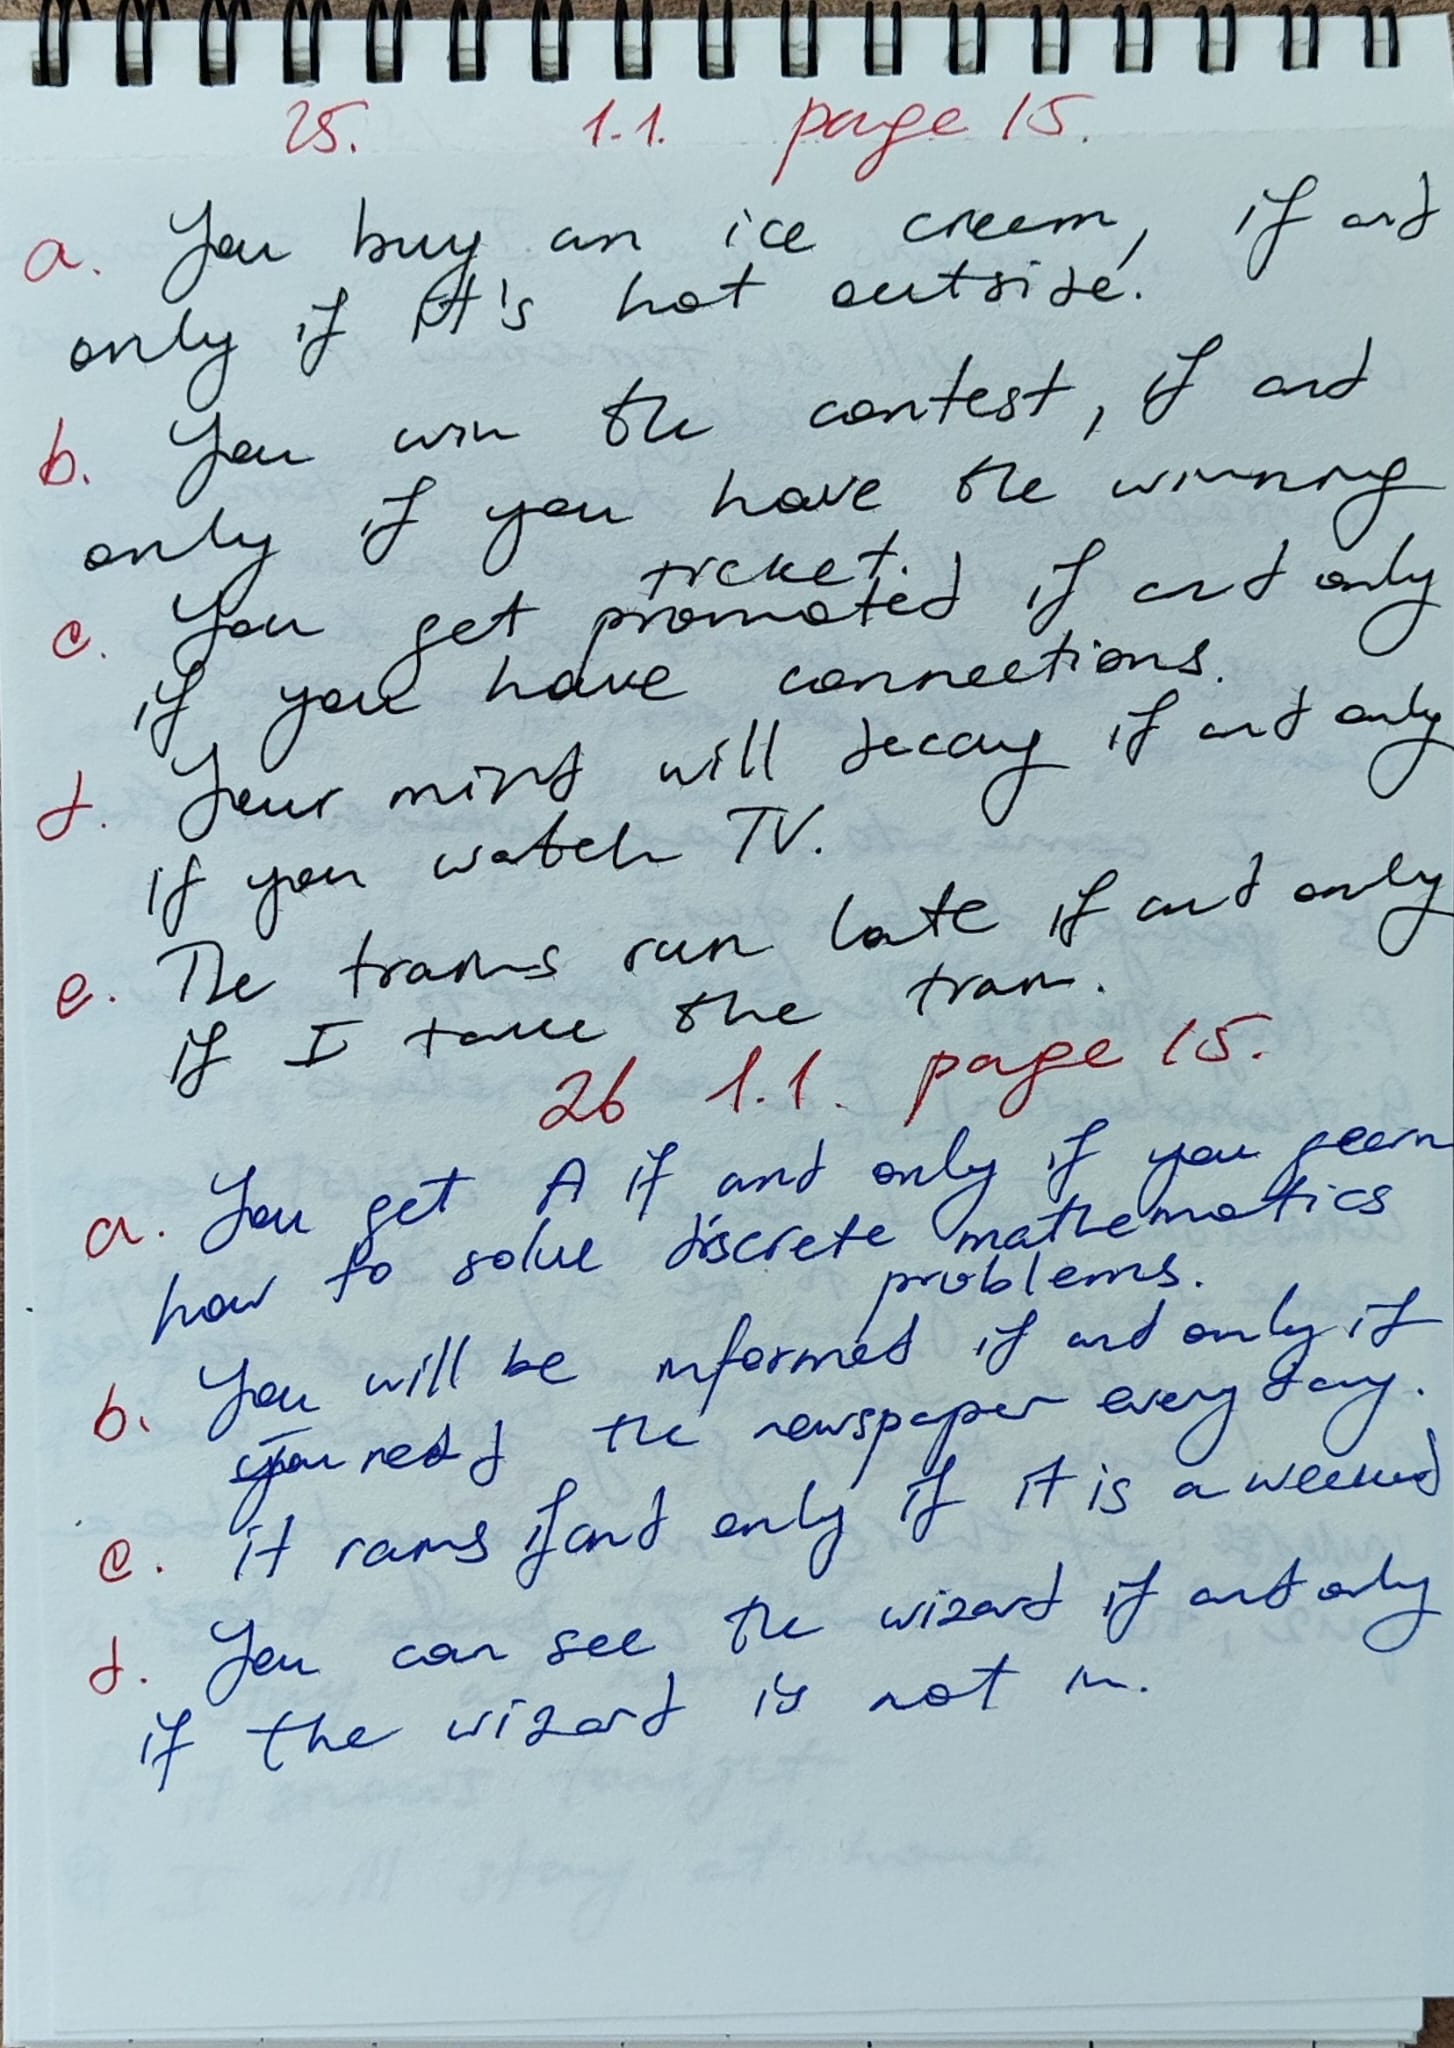 25. 1.1. page 15.
a. You buy an ice creem, if and
only if it's hot outside.
b. You win the contest, if and
only if you have the winning
ticket.
c. You get promoted if and only
if you have connections.
d. Your mind will decay if and only
if you watch TV.
e. The trains run late if and only
if I take the train.
26 1.1. page 15.
a. You get A if and only if you learn
how to solve discrete mathematics
problems.
b. You will be informed if and only if
you read the newspaper every day.
c. it rains if and only if it is a weekend
d. You can see the wizard if and only
if the wizard is not in.